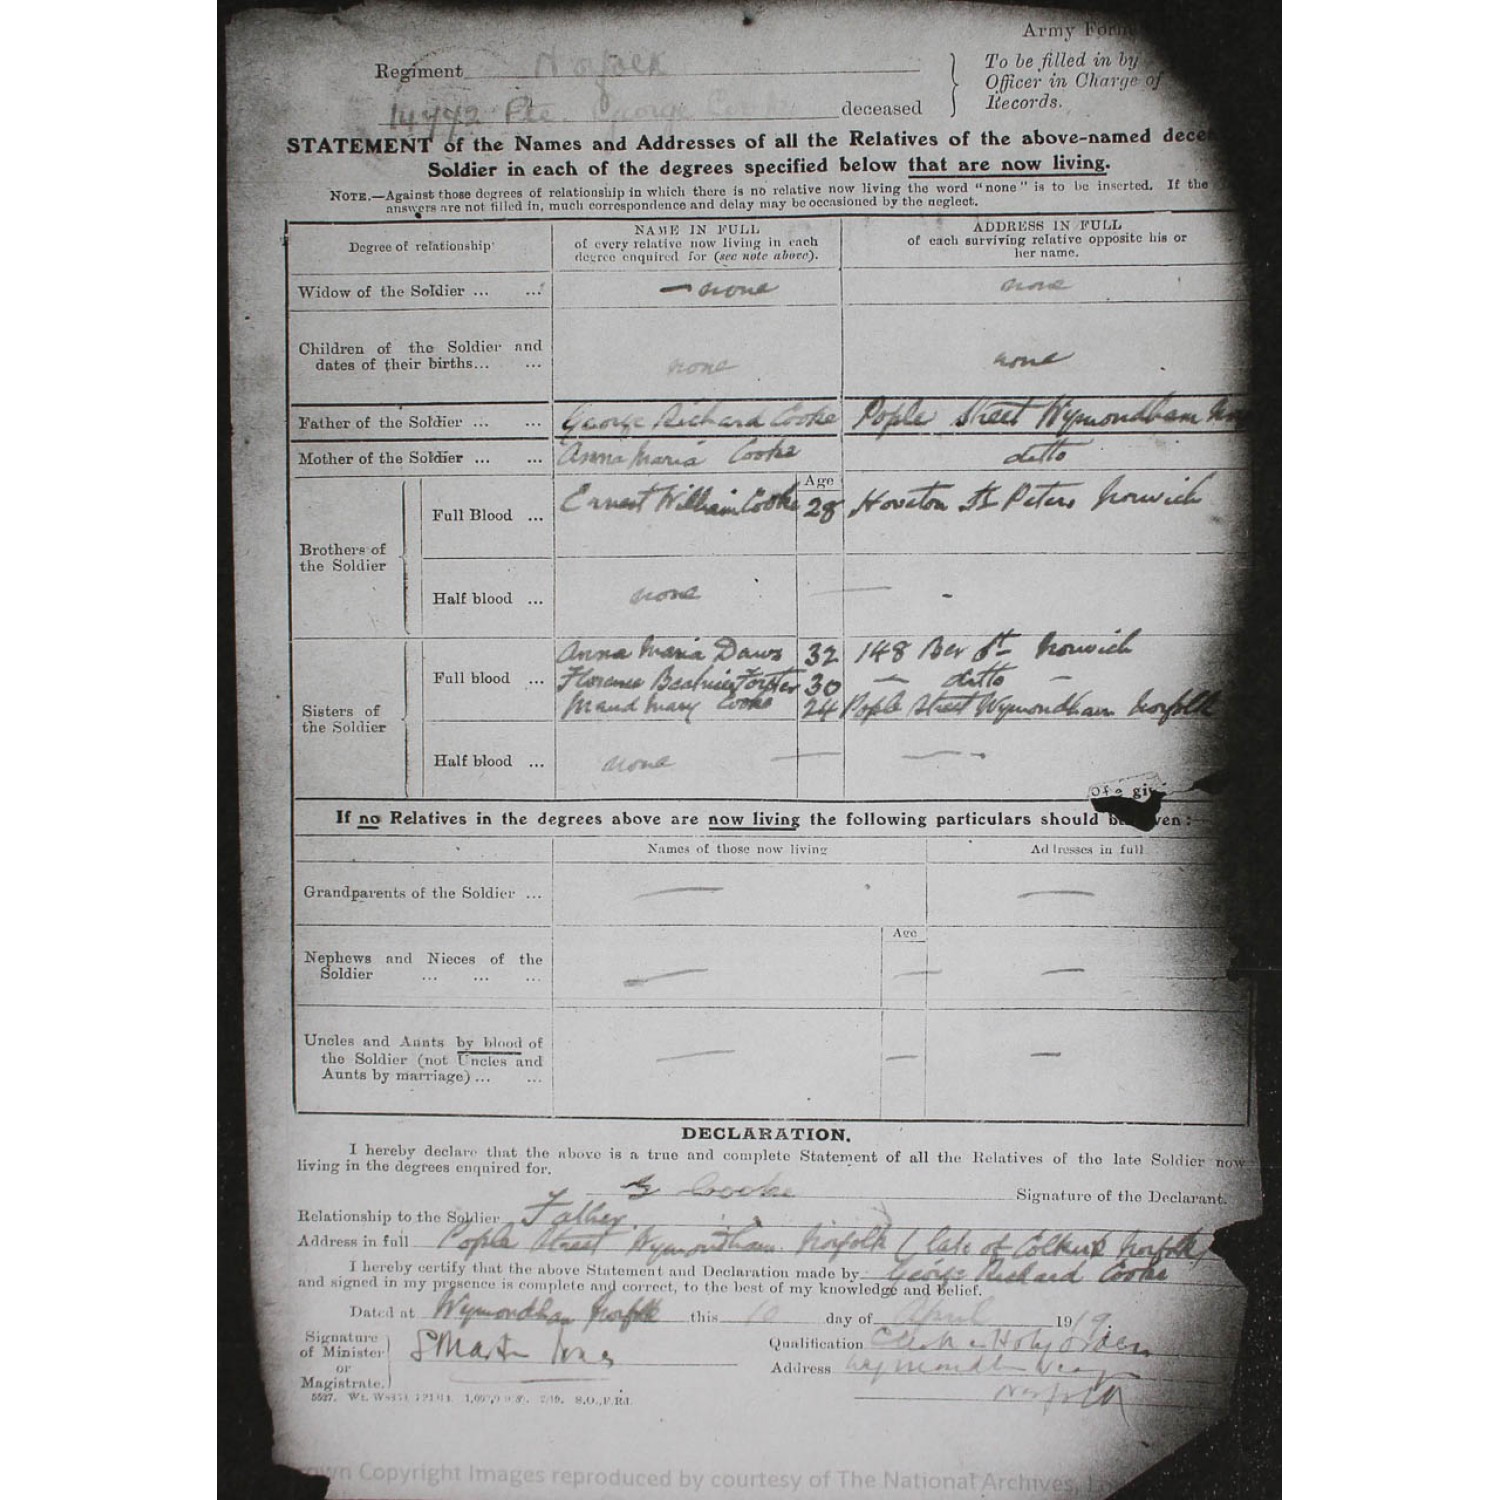 Army Form
Regiment Norfolk
To be filled in by
Officer in Charge of
Records.
14442 Pte. George Cooke deceased
STATEMENT of the Names and Addresses of all the Relatives of the above-named dece
Soldier in each of the degrees specified below that are now living.
NOTE.—Against those degrees of relationship in which there is no relative now living the word "none" is to be inserted. If the
answers are not filled in, much correspondence and delay may be occasioned by the neglect.
Degree of relationship
NAME IN FULL
of every relative now living in each
degree enquired for (see note above).
ADDRESS IN FULL
of each surviving relative opposite his or
her name.
Widow of the Soldier ... ... none none
Children of the Soldier and
dates of their births... ... none none
Father of the Soldier ... ... George Richard Cooke Pople Street Wymondham
Mother of the Soldier ... ... Anna Maria Cooke ditto
Age
Brothers of
the Soldier
Full Blood ... Ernest William Cooke 28 Hoveton St Peters Norwich
Half blood ... none — -
Sisters of
the Soldier
Full blood ...
Anna Maria Daws 32 148 Ber St Norwich
Florence Beatrice Forster 30 — ditto —
Maud Mary Cooke 24 Pople Street Wymondham Norfolk
Half blood ... none — —
If no Relatives in the degrees above are now living the following particulars should be given:—
Names of those now living
Addresses in full
Grandparents of the Soldier ... — —
Age
Nephews and Nieces of the
Soldier ... ... ... — — —
Uncles and Aunts by blood of
the Soldier (not Uncles and
Aunts by marriage) ... ... — — —
DECLARATION.
I hereby declare that the above is a true and complete Statement of all the Relatives of the late Soldier now
living in the degrees enquired for.
G Cooke Signature of the Declarant.
Relationship to the Soldier Father
Address in full Pople Street Wymondham Norfolk (late of Colkirk Norfolk)
I hereby certify that the above Statement and Declaration made by George Richard Cooke
and signed in my presence is complete and correct, to the best of my knowledge and belief.
Dated at Wymondham Norfolk this 10 day of April 1919.
Signature
of Minister
or
Magistrate.
S Martin Jones
Qualification Clerk in Holy Orders
Address Wymondham Vicarage
Norfolk
Crown Copyright Images reproduced by courtesy of The National Archives, Lo